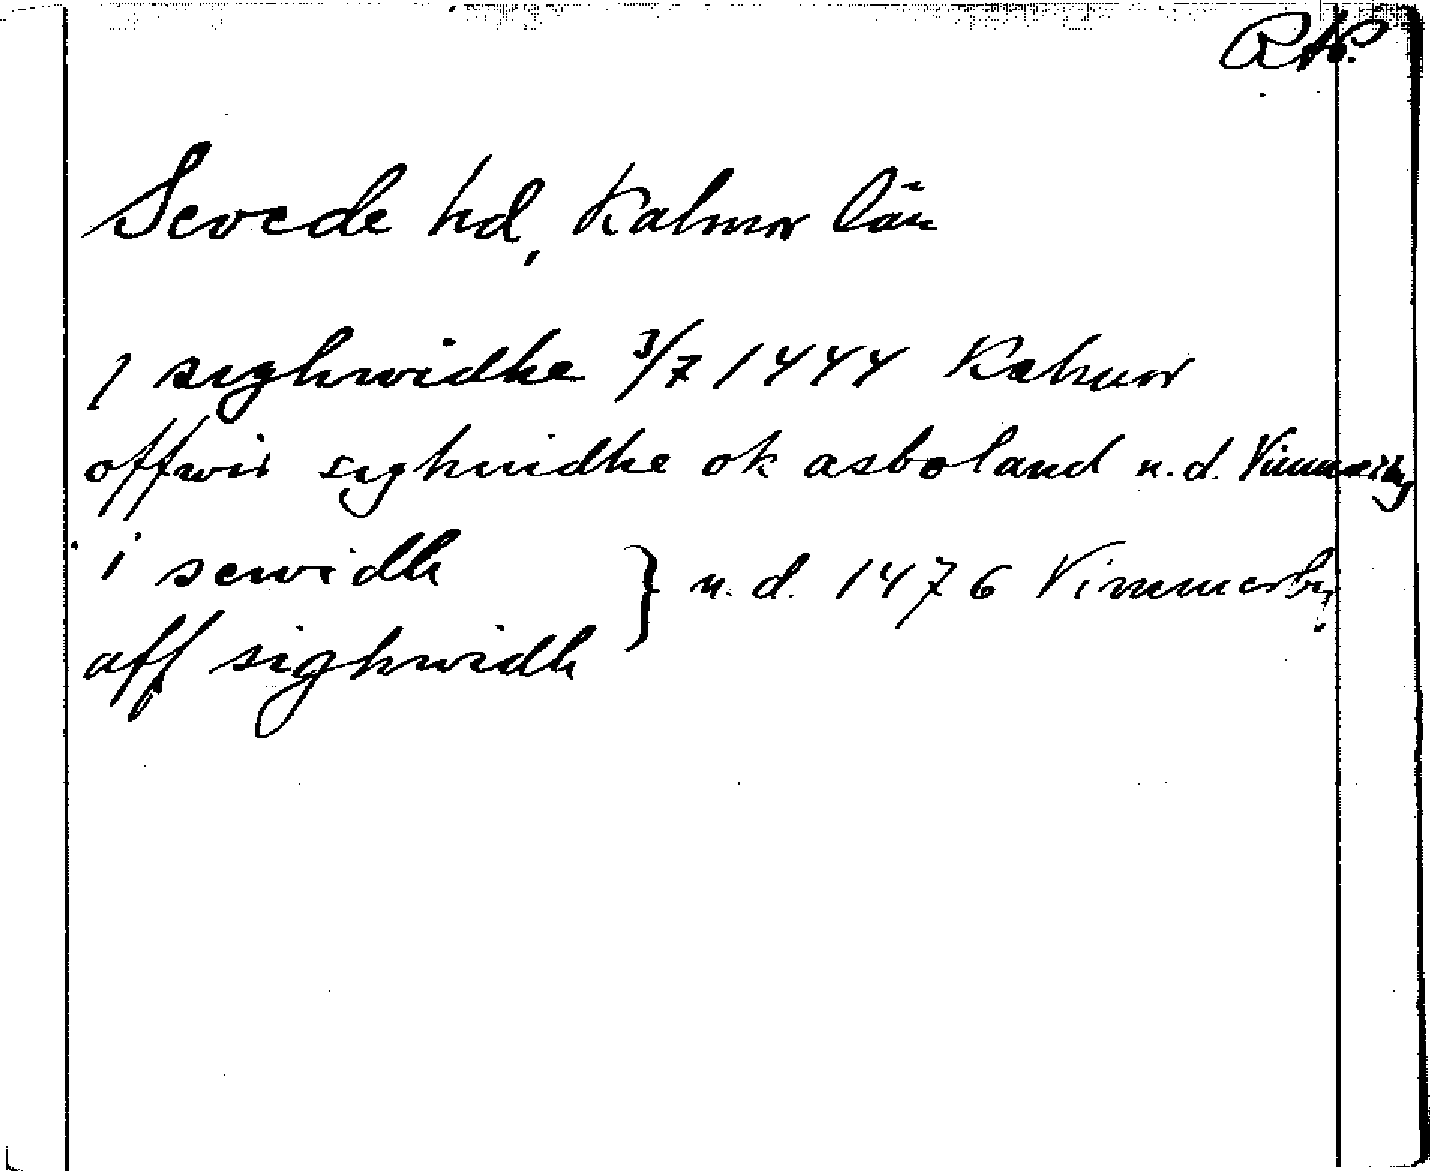 RAP.
Sevede hd, Kalmar län
j sighwidhe 3/7 1444 Kalmar
offwir sighuidhe ok asboland u.d. Vimmerby
i sewidh
aff sighwidh } u.d. 1476 Vimmerby